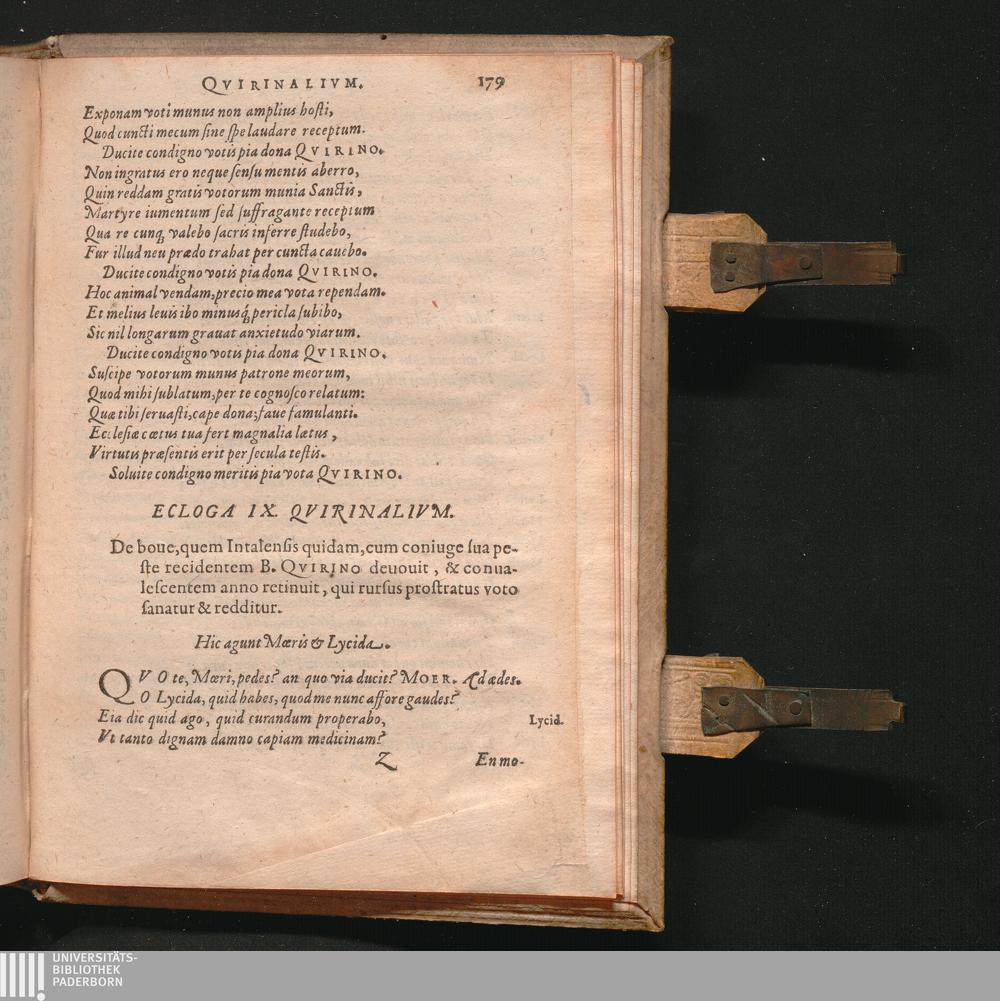 QVIRINALIVM. 179
Exponam voti munus non amplius hosti,
Quod cuncti mecum sine spe laudare receptum.
Ducite condigno votis pia dona QVIRINO.
Non ingratus ero neque sensu mentis aberro,
Quin reddam gratis votorum munia Sanctis,
Martyre iumentum sed suffragante receptum
Qua re cunq; valebo sacris inferre studebo,
Fur illud neu prædo trahat per cuncta cauebo.
Ducite condigno votis pia dona QVIRINO.
Hoc animal vendam, precio mea vota rependam.
Et melius leuis ibo minusq́; pericla subibo,
Sic nil longarum grauat anxietudo viarum.
Ducite condigno votis pia dona QVIRINO.
Suscipe votorum munus patrone meorum,
Quod mihi sublatum, per te cognosco relatum:
Quæ tibi seruasti, cape dona; faue famulanti.
Ecclesiæ cœtus tua fert magnalia lætus,
Virtutis præsentis erit per secula testis.
Soluite condigno meritis pia vota QVIRINO.
ECLOGA IX. QVIRINALIVM.
De boue, quem Intalensis quidam, cum coniuge sua pe-
ste recidentem B. QVIRINO deuouit, & conua-
lescentem anno retinuit, qui rursus prostratus voto
sanatur & redditur.
Hic agunt Mœris & Lycida.
QVO te, Mœri, pedes? an quo via ducit? MOER. Ad ædes.
O Lycida, quid habes, quod me nunc affore gaudes?
Eia dic quid ago, quid curandum properabo, Lycid.
Vt tanto dignam damno capiam medicinam?
Z En mo-
UNIVERSITÄTS-
BIBLIOTHEK
PADERBORN